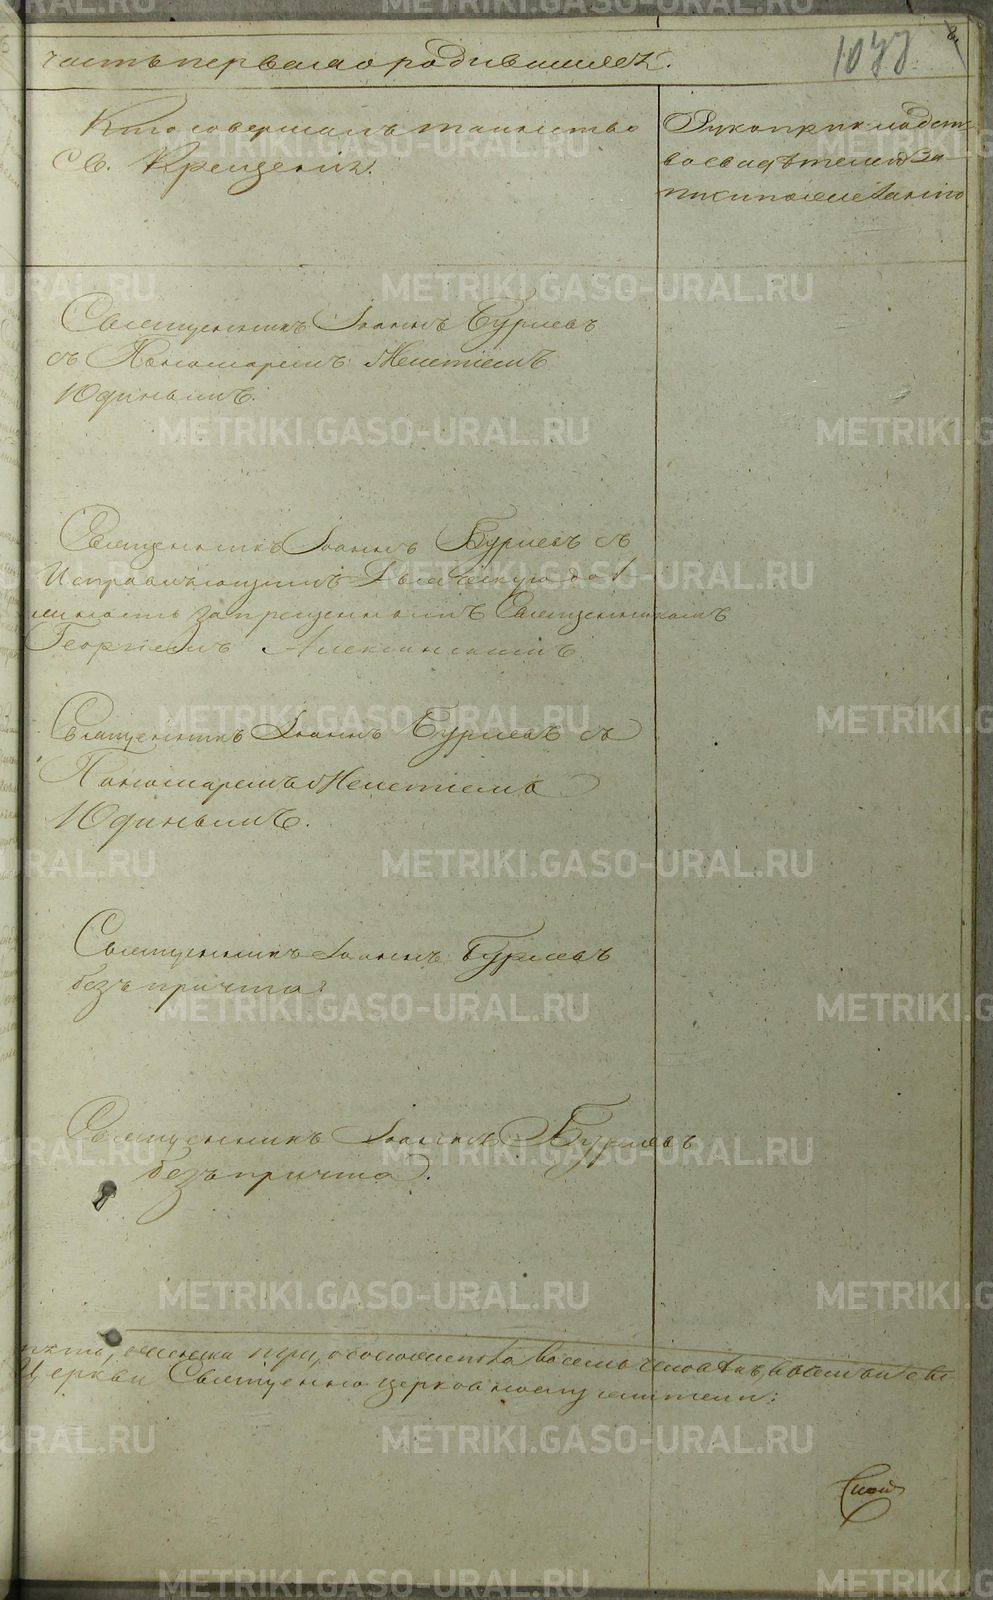 часть первая о родившихся.
1077
Кто совершалъ таинство
Св. Крещенія.
Рукоприкладст
во свидѣтелей за
писи по желанію
Священникъ Іоаннъ Бурлевъ
съ Пономаремъ Мелетіемъ
Юдинымъ.
Священникъ Іоаннъ Бурлевъ съ
Исправляющимъ Дьяческую до
лжность запрещеннымъ Священникомъ
Георгіемъ
Священникъ Іоаннъ Бурлевъ съ
Пономаремъ Мелетіемъ
Юдинымъ.
Священникъ Іоаннъ Бурлевъ
безъ причта
Священникъ Іоаннъ Бурлевъ
безъ причта.
пять, женска три, обоего пола восемь человѣкъ,
Церкви Священно церковно служители:
METRIKI.GASO-URAL.RU